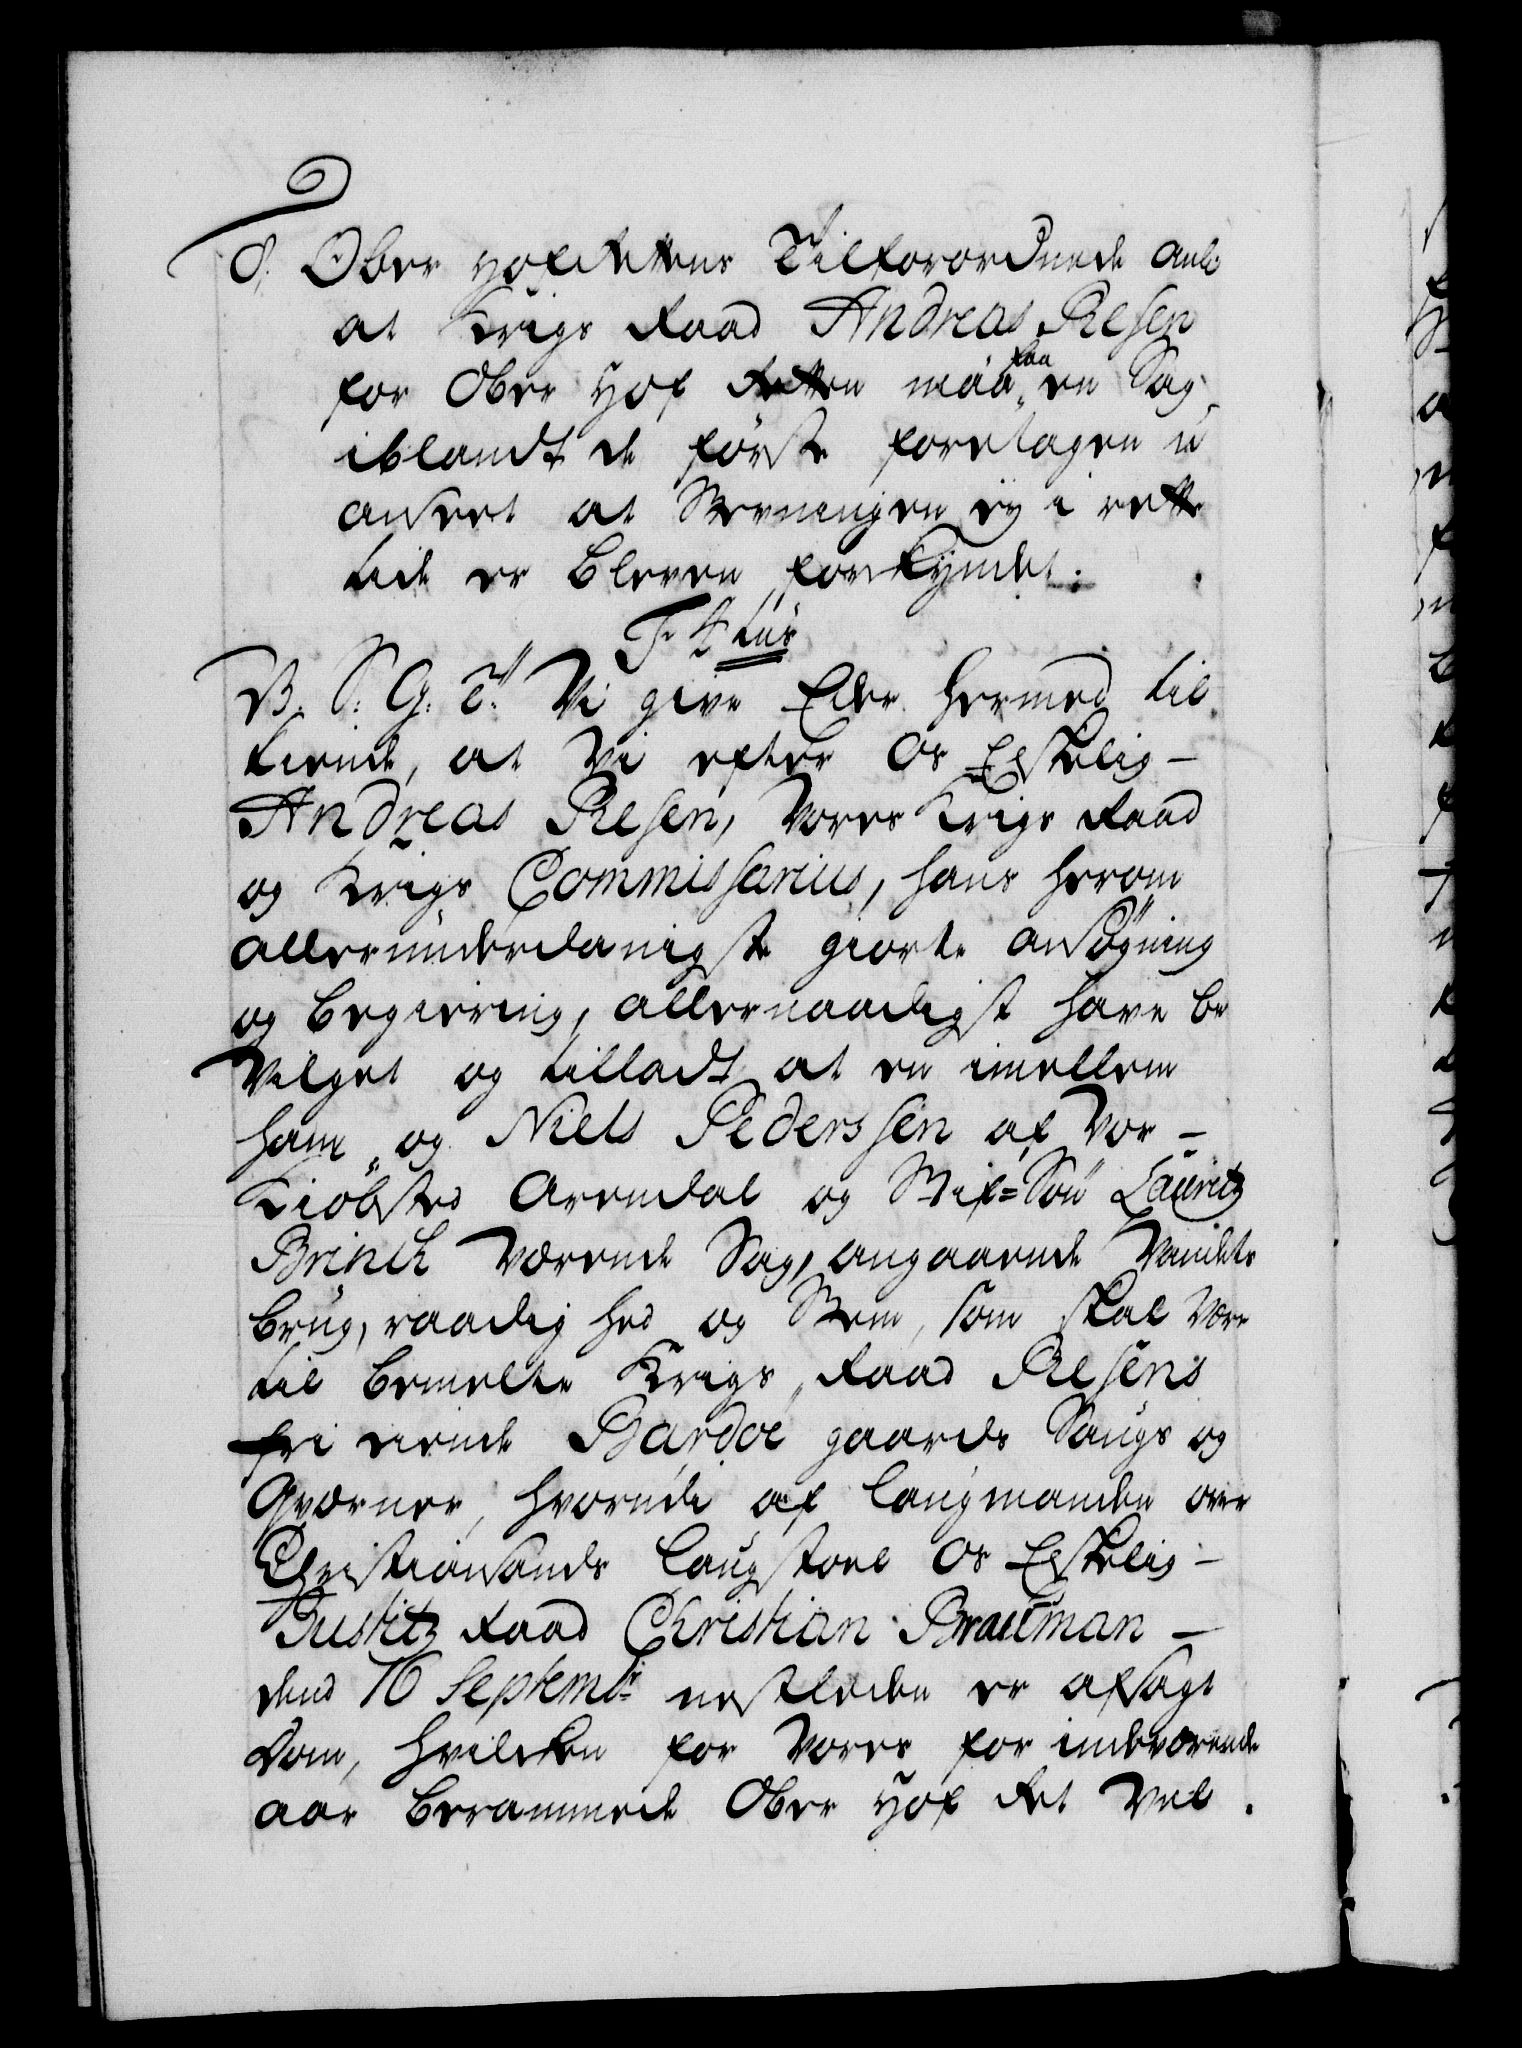 Ober Hofrettens Tilforordnede anl:
at Krigs Raad Andreas Resen
for Ober Hof Retten maa faa en Sag
iblandt de første foretagen u
anseet at Stevningen ey i rette
tide er bleven forkyndet.
F. 4tus
V. S: G. T. Vi give Eder hermed til
kiende, at Vi efter Os Elskelig
Andreas Resen, Vores Krigs Raad
og Krigs Commissarius, hans herom
allerunderdanigste giorte ansøgning
og begiering, allernaadigst have be
Vilget og tilladt at en imellem
ham og Niels Pederssen af Vor
Kiøbsted Arendal og Stif-Søn Lauritz
Brinch værende Sag, angaaende Vandets
brug, raadig hed og Stem, som skal være
til bemelte Krigs Raad Resens
frj eiende Bardoe gaards Saugs og
Qværner, hvorudi af Laugmanden over
Christiansands Laugstoel Os Elskelig
Justitz Raad Christian Brauman
dend 16 Septembr. nestleden er afsagt
Dom, hvilken for Vores for indeværende
aar berammede Ober Hof Ret Vel